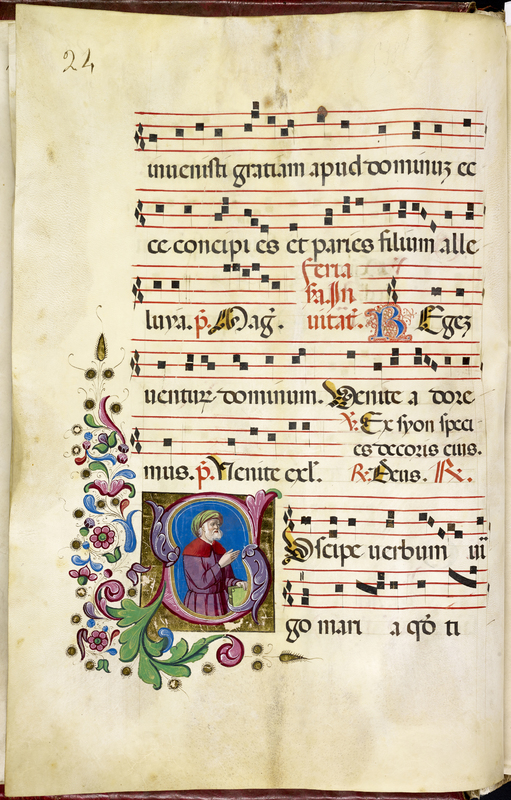 24
invenisti gratiam apud dominuz ec
ce concipi es et paries filium alle
luya. p̄. Maḡ. feria
fa. In
vitat̄. Regez
venturz dominum. Venite a dore
mus. p̄. Venite exl̄. ℣. Ex syon speci
es decoris eius.
℟. Deus. ℟.
Suscipe verbum vir
go mari a qđ ti